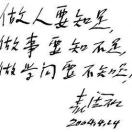 做人要知足，
做事要知不足，
做学问要不知足。
裘法祖
2004.9.24